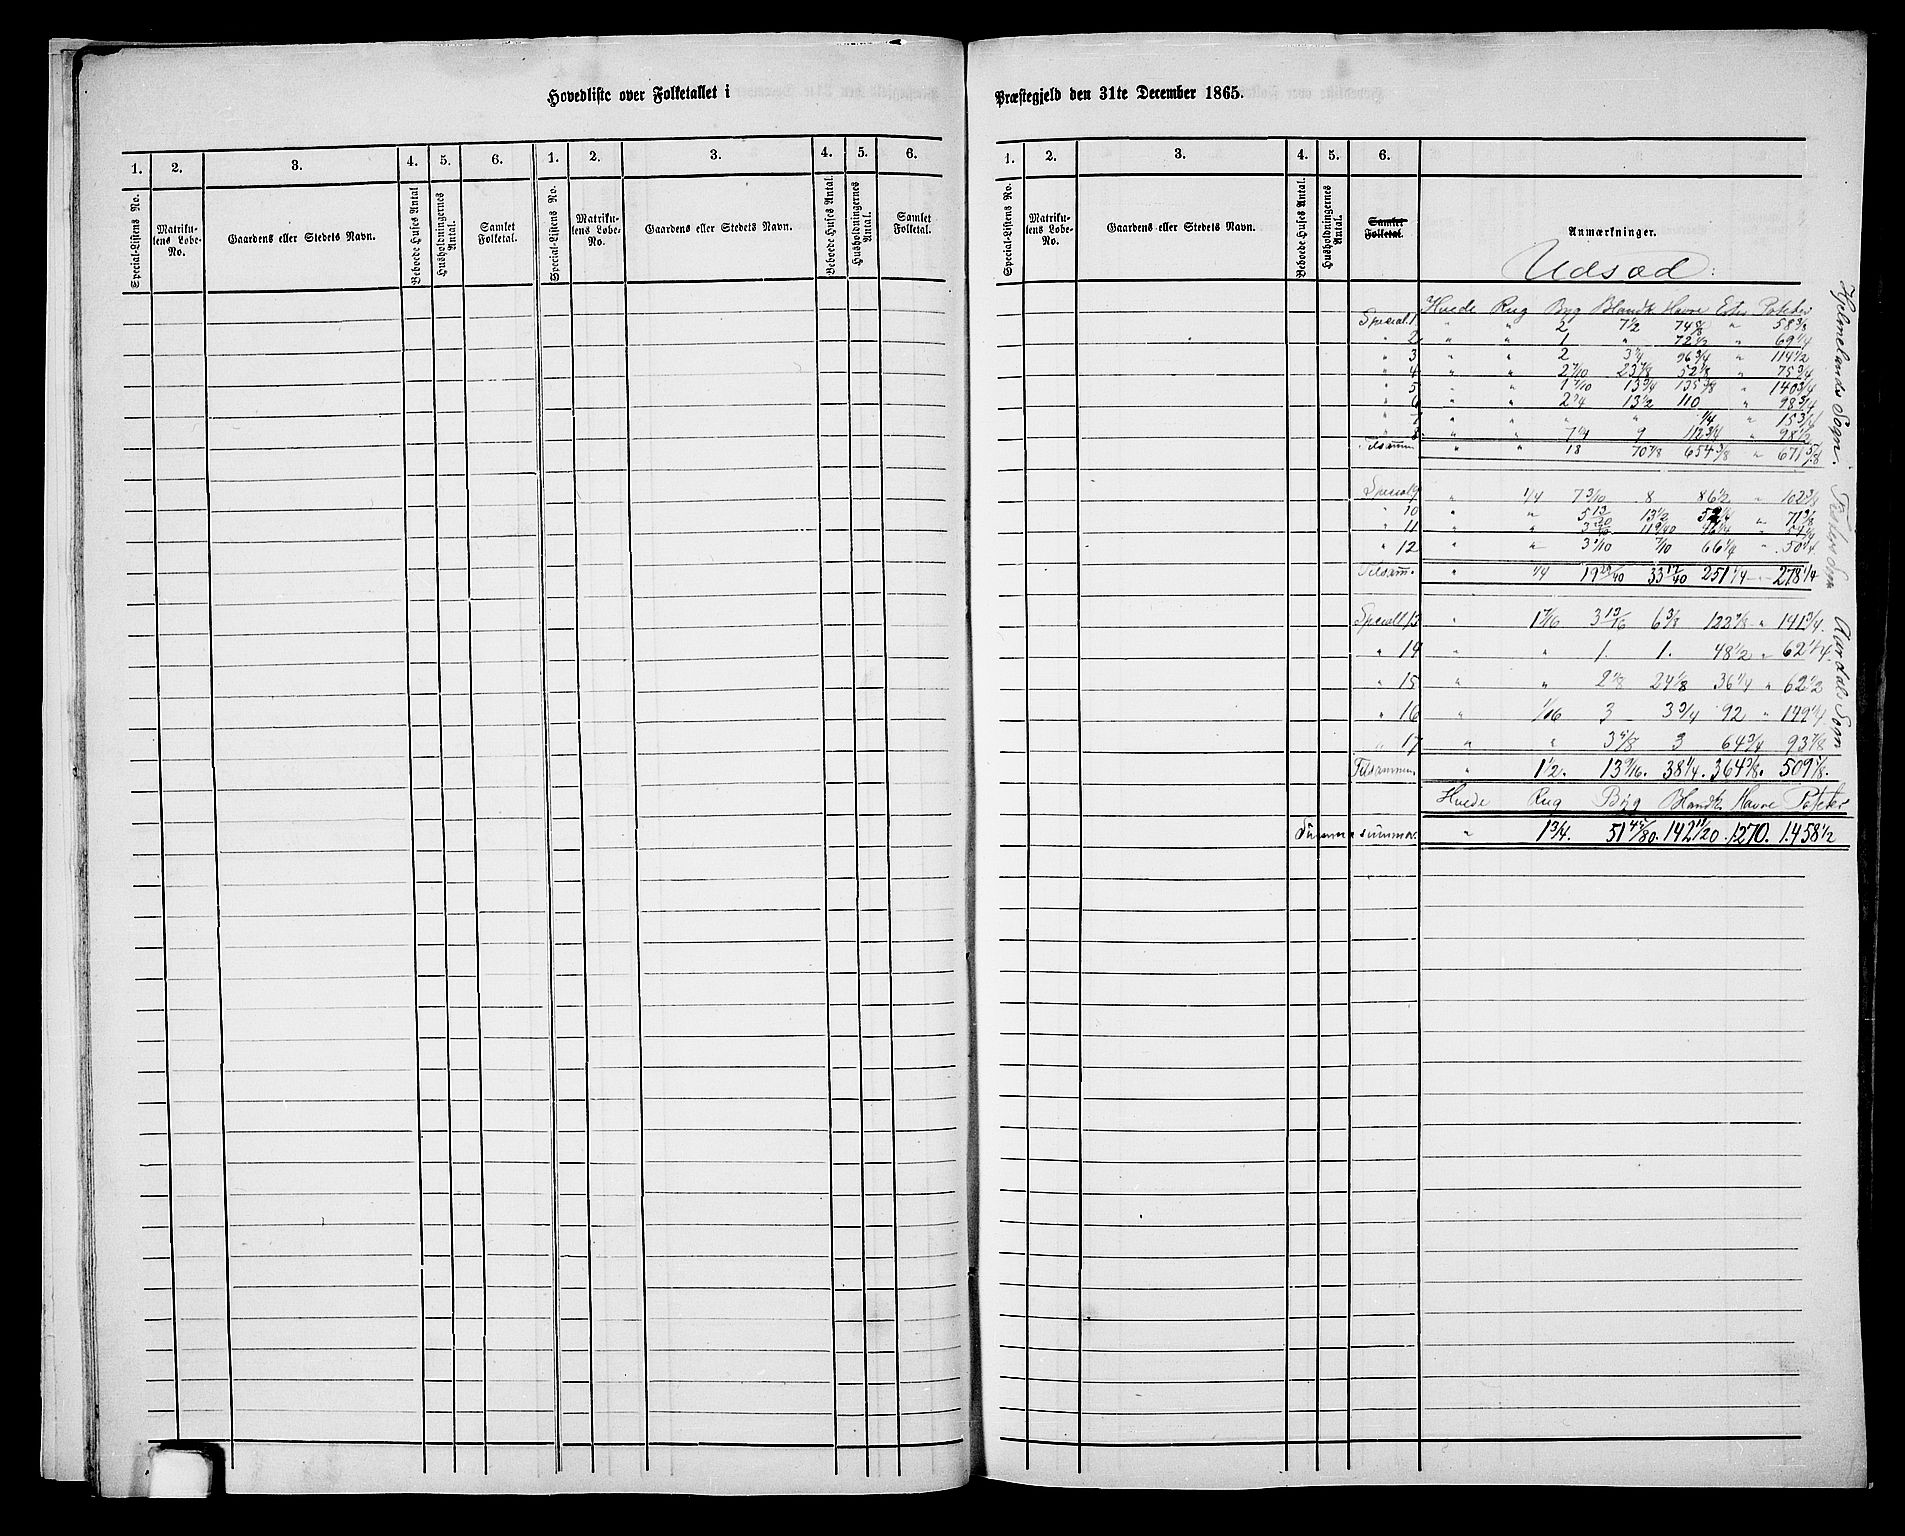 Hovedliste over Folketallet i
Præstegjeld den 31te December 1865.
1. 2. 3. 4. 5. 6. 1. 2. 3. 4. 5. 6.
Special-Listens No. Matrikulens Løbe-No. Gaardens eller Stedets Navn. Beboede Huses Antal Husholdningernes Antal. Samlet Folketal. Special-Listens No. Matrikulens Løbe-No. Gaardens eller Stedets Navn. Beboede Huses Antal. Husholdningernes Antal. Samlet Folketal.
1. 2. 3. 4. 5. 6.
Special-Listens No. Matrikulens Løbe-No. Gaardens eller Stedets Navn. Beboede Huses Antal. Husholdningernes Antal. Samlet Folketal. Anmærkninger.
Udsæd:
Hvede Rug Byg Blandk Havre Erter Poteter
Special. 1 " " 2 7 1/2 74 " 58 3/8
" 2 " " 1 " 72 1/2 " 69 1/4
" 3 " " 2 3 1/4 96 3/4 " 114 1/2
" 4 " " 2 7/10 23 7/8 52 1/8 " 75 3/4
" 5 " " 1 7/10 13 3/4 135 3/8 " 140 3/4
" 6 " " 2 1/4 13 1/2 110 " 98 3/4
" 7 " " " " 1/4 " 15 3/4
" 8 " " 7 1/4 9 112 3/4 " 98 1/2
Tilsamm " " 18 70 7/8 654 3/8 " 671 5/8
Special 9 " 1/4 7 3/10 8 86 1/2 " 102 3/4
" 10 " " 5 13/20 13 1/2 52 1/4 " 71 3/8
" 11 " " 3 11 9/40 46 1/4 " 54 1/4
" 12 " " 3 7/10 66 1/4 " 50 1/4
Tilsamm. " 1/4 19 /40 33 17/40 251 1/4 " 278 1/4
Specialt 13 " 1 7/16 3 13/16 6 3/8 122 7/8 " 141 3/4.
" 14 " " 1. 1. 48 1/2 " 62 1/4.
" 15 " " 2 1/8 24 1/8 36 1/4 " 62 1/2
" 16 " 1/16 3 3 3/4 92 " 149 1/4.
" 17 " " 3 5/8 3 64 3/4 93 7/8
Tilsammen. " 1 1/2. 13 9/16. 38 1/4. 364 3/8. 509 7/8.
Hvede Rug Byg Blandk. Havre Poteter
Summa summar. " 1 3/4. 51 45/80. 142 11/20. 1270. 1458 1/2
Hjelmelands Sogn.
Fister Sogn
Aardals Sogn